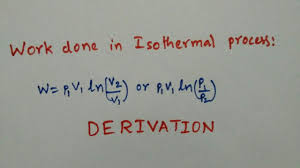 Work done in Isothermal process:
W = P₁V₁ ln(V₂/V₁) or P₁V₁ ln(P₁/P₂)
DERIVATION